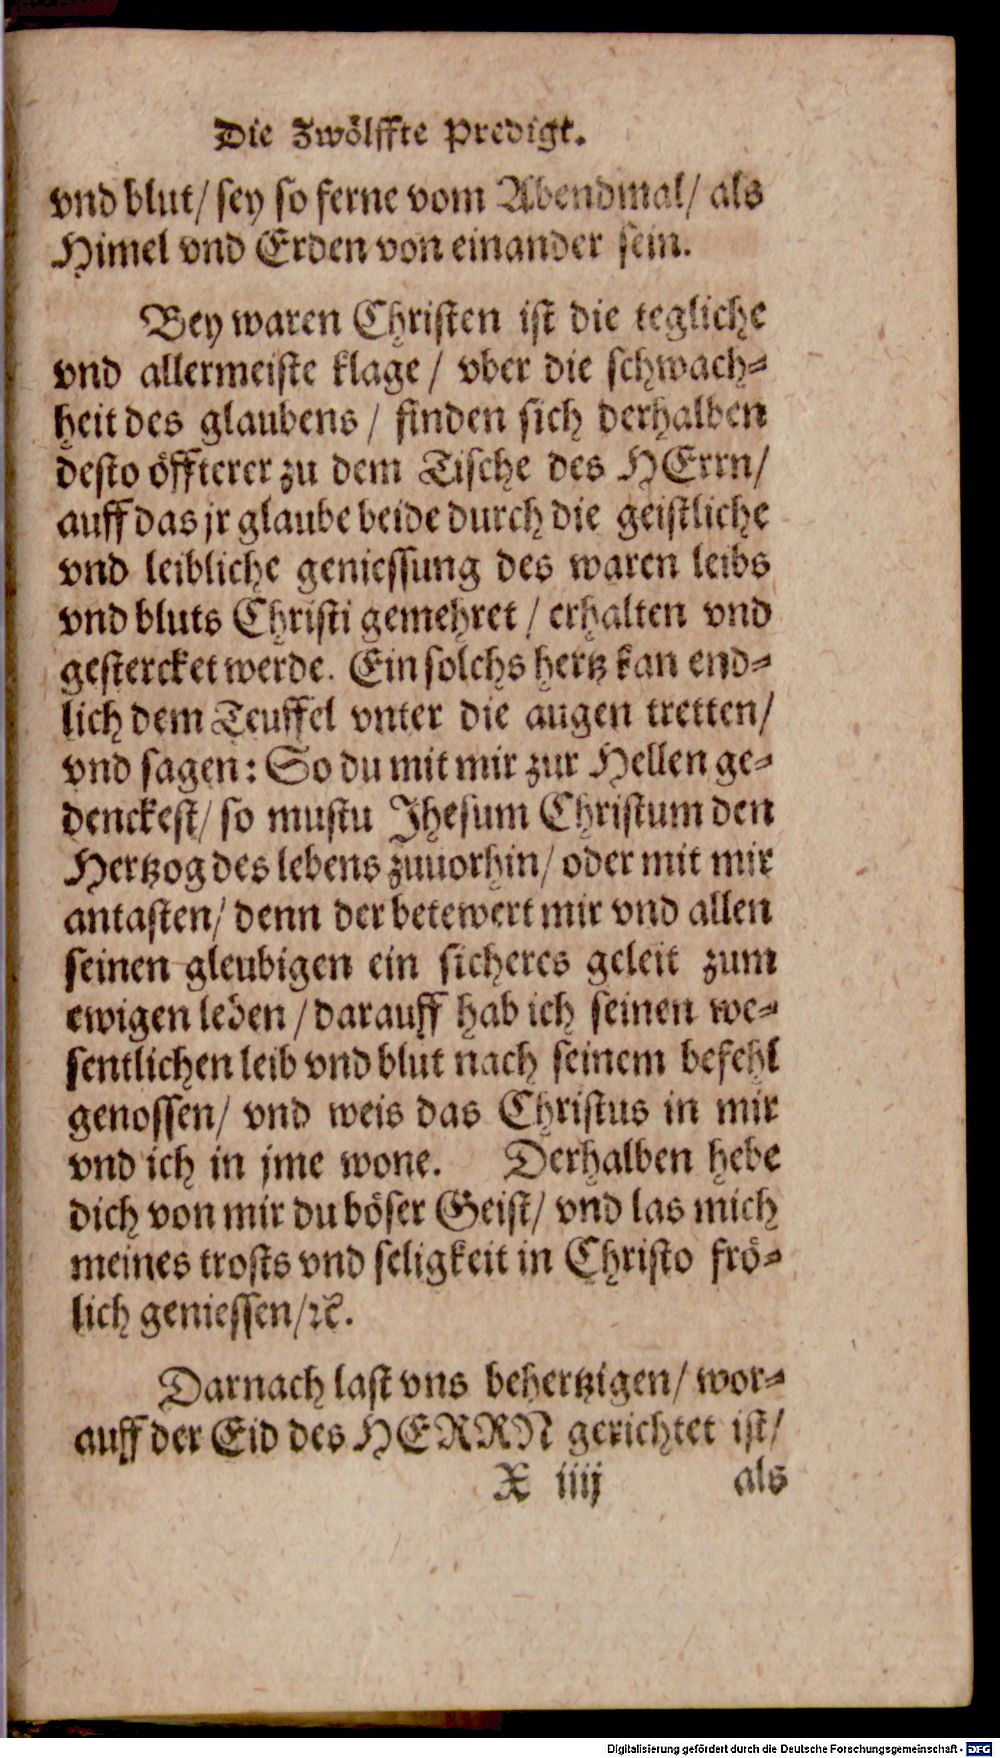 Die Zwölffte Predigt.
vnd blut/ sey so ferne vom Abendmal/ als
Himel vnd Erden von einander sein.
Bey waren Christen ist die tegliche
vnd allermeiste klage / vber die schwach⸗
heit des glaubens / finden sich derhalben
desto öffterer zu dem Tische des HErrn/
auff das jr glaube beide durch die geistliche
vnd leibliche geniessung des waren leibs
vnd bluts Christi gemehret / erhalten vnd
gestercket werde. Ein solchs hertz kan end⸗
lich dem Teuffel vnter die augen tretten/
vnd sagen: So du mit mir zur Hellen ge⸗
denckest/ so mustu Jhesum Christum den
Hertzog des lebens zuuorhin/ oder mit mir
antasten/ denn der betewert mir vnd allen
seinen gleubigen ein sicheres geleit zum
ewigen leben / darauff hab ich seinen we⸗
sentlichen leib vnd blut nach seinem befehl
genossen/ vnd weis das Christus in mir
vnd ich in jme wone. Derhalben hebe
dich von mir du böser Geist/ vnd las mich
meines trosts vnd seligkeit in Christo frö⸗
lich geniessen/ꝛc̃.
Darnach last vns behertzigen/ wor⸗
auff der Eid des HERRN gerichtet ist/
X iiij als
Digitalisierung gefördert durch die Deutsche Forschungsgemeinschaft - DFG